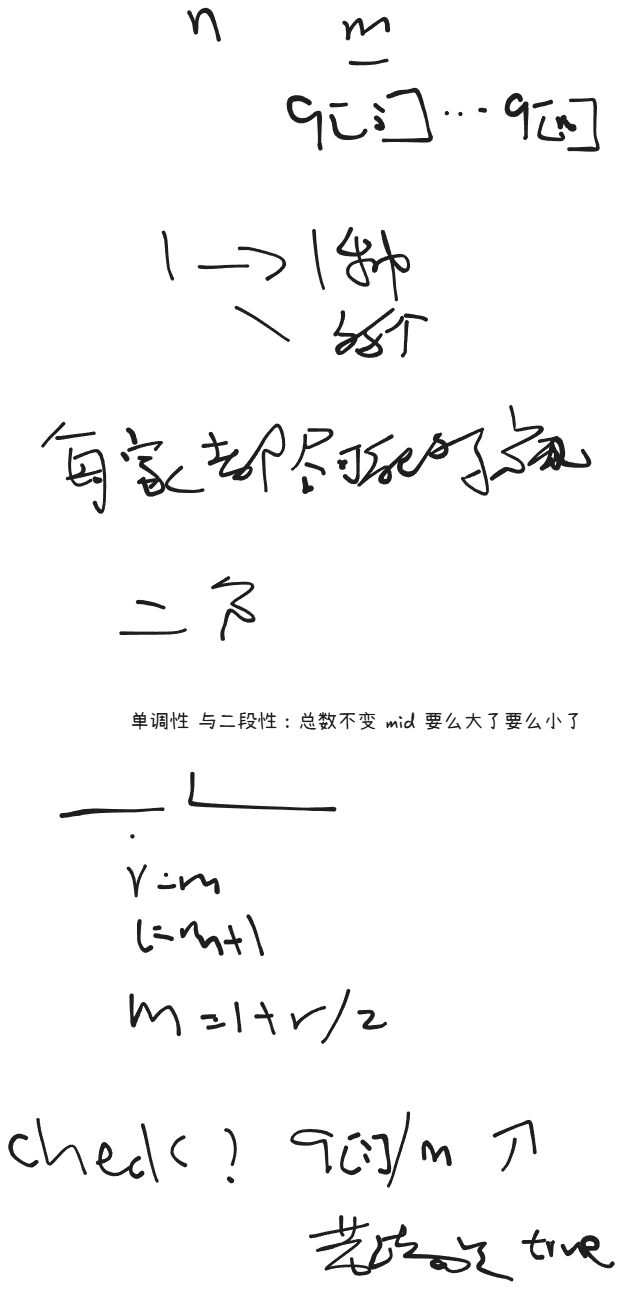 n m
q[i] ... q[n]
1 → 1种
多个
每家都尽可能
二分
单调性 与二段性：总数不变 mid 要么大了要么小了
r=m
l=m+1
m=l+r/2
check? q[i]/m ↗
true